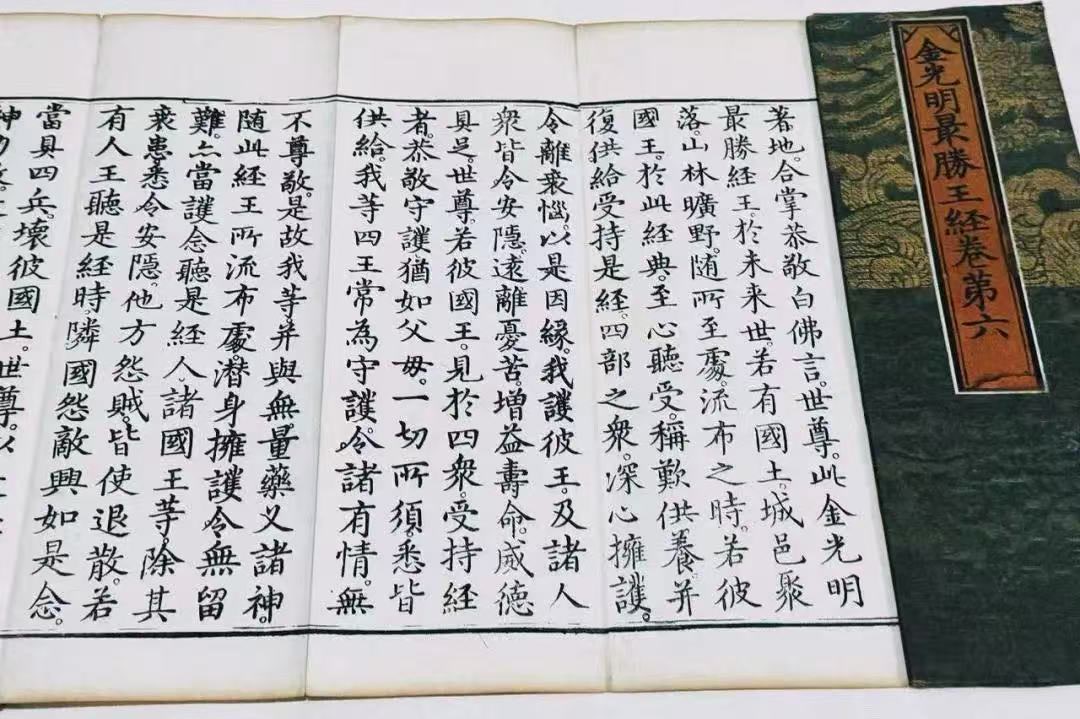 金光明最勝王經卷第六
著地。合掌恭敬白佛言。世尊。此金光明
最勝經王。於未来世。若有國土。城邑聚
落。山林曠野。随所至處。流布之時。若彼
國王。於此經典。至心聽受。稱歎供養。并
復供給受持是經。四部之衆。深心擁護。
令離衆惱。以是因緣。我護彼王。及諸人
衆。皆令安隱。遠離憂苦。增益壽命。威德
具足。世尊。若彼國王。見於四衆。受持經
者。恭敬守護。猶如父母。一切所須。悉皆
供給。我等四王常為守護。令諸有情。無
不尊敬。是故我等并與無量藥叉諸神。
随此經王所流布處。潜身擁護令無留
難。亦當護念聽是經人。諸國王等。除其
衰患。悉令安隱。他方怨賊。皆使退散。若
有人王聽是經時。隣國怨敵興如是念。
當具四兵。壞彼國土。世尊。以